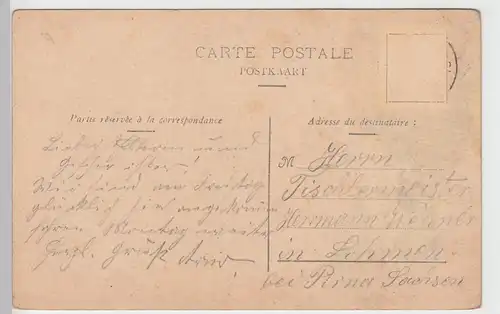 CARTE POSTALE
POSTKAART
Partie réservée à la correspondance
Adresse du destinataire :
Liebe Eltern und
Geschwister!
Wir sind am Freitag
glücklich hier angekommen
fahren Montag weiter
Herzl. Gruß
M Herrn
Tischlermeister
Hermann Werner
in Lohmen
bei Pirna Sachsen